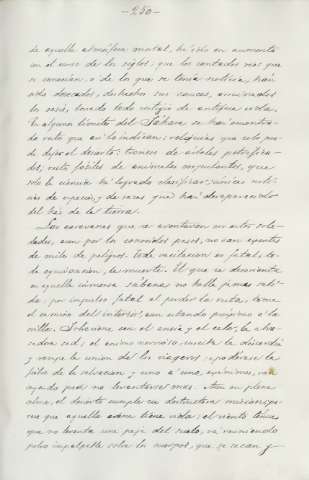 -250-
de aquella atmósfera mortal, ha ido en aumento
en el curso de los siglos; que los contados rios que
se conocian, o de los que se tenia noticia, han
sido desecados, deshechos sus cauces, arruinados
los oasis, borrado todo vestigio de antigua escala.
En algun limite del Sahara se han encontra-
do restos que asi lo indican: reliquias que solo pu-
do dejar el desierto: troncos de arboles petrifica-
dos; restos fósiles de animales corpulentos, que
solo la ciencia ha logrado clasificar; únicas noti-
cias de especies, y de razas que han desaparecido
del haz de la tierra.
Las caravanas que se aventuran en estas sole-
dades, aun por los conocidos pasos, no van exentas
de miles de peligros. Toda vacilacion es fatal, to-
da equivocacion, la muerte. El que se desorienta
en aquella inmensa sábana no halla jamas sali-
da; por impulso fatal al perder la ruta, toma
el camino del interior, aun estando próximo a la
orilla. Sobreviene con el ansia y el calor, la abra-
sadora sed; el animo nervioso, suscita la discordia
y rompe la union de los viageros; apodérase la
fiebre de la salvacion y uno a uno, exánimes, van
cayendo para no levantarse mas. Aun en plena
calma, el desierto cumple su destructora mision; pa-
rece que aquella arena tiene vida; el viento tenue
que no levanta una paja del suelo, va reuniendo
polvo impalpable sobre los cuerpos, que se secan y